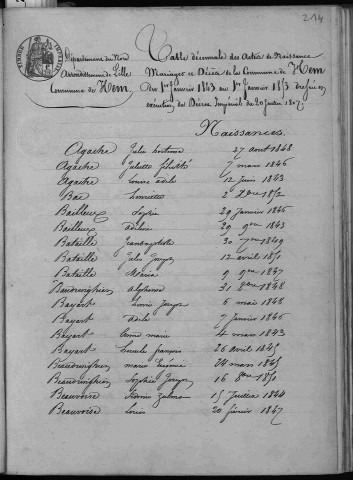 214
Département du Nord
Arrondissement de Lille
Commune de Hem
Table décennale des Actes de Naissance
Mariages et Décès de la Commune de Hem
du 1er Janvier 1843 au 1er Janvier 1853 dressée en
exécution du Décret Impérial du 20 Juillet 1807
Naissances.
Agache Jules 27 aout 1848
Agache Juliette 7 mars 1846
Agache Louise Adèle 12 juin 1843
Bac Henriette 2 1852
Bailleux Sophie 29 janvier 1846
Bailleux Adeline 29 9bre 1843
Bataille Jeanbaptiste 30 7bre 1849
Bataille Jules Joseph 12 avril 1851
Bataille Maria 9 9bre 1847
Baudringhien Alphonse 31 8bre 1848
Bayart Louis Joseph 6 mai 1848
Bayart Adèle 7 janvier 1846
Bayart marie 4 mars 1843
Bayart françois 26 avril 1845
Beaudringhien marie 24 mars 1845
Beaudringhien Sophie Joseph 16 8bre 1851
Beauvoise Zulma 15 Juillet 1844
Beauvoise Louis 20 février 1847